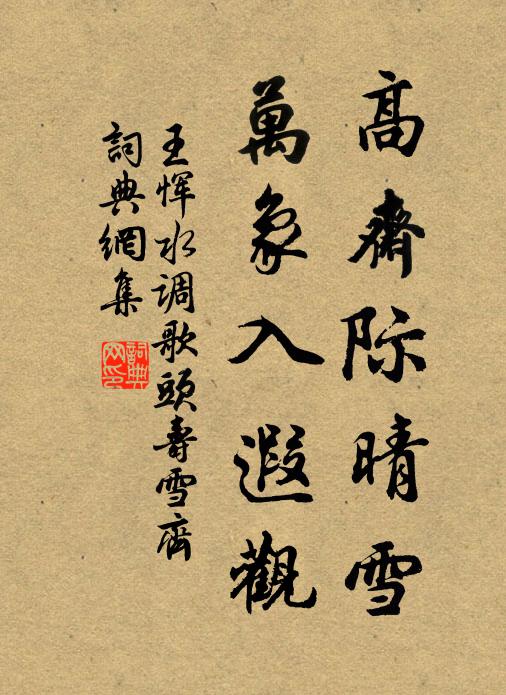 高齋际晴雪
萬象入遐觀
王恽水调歌頭壽雪齋
詞典網集
詞典
网印